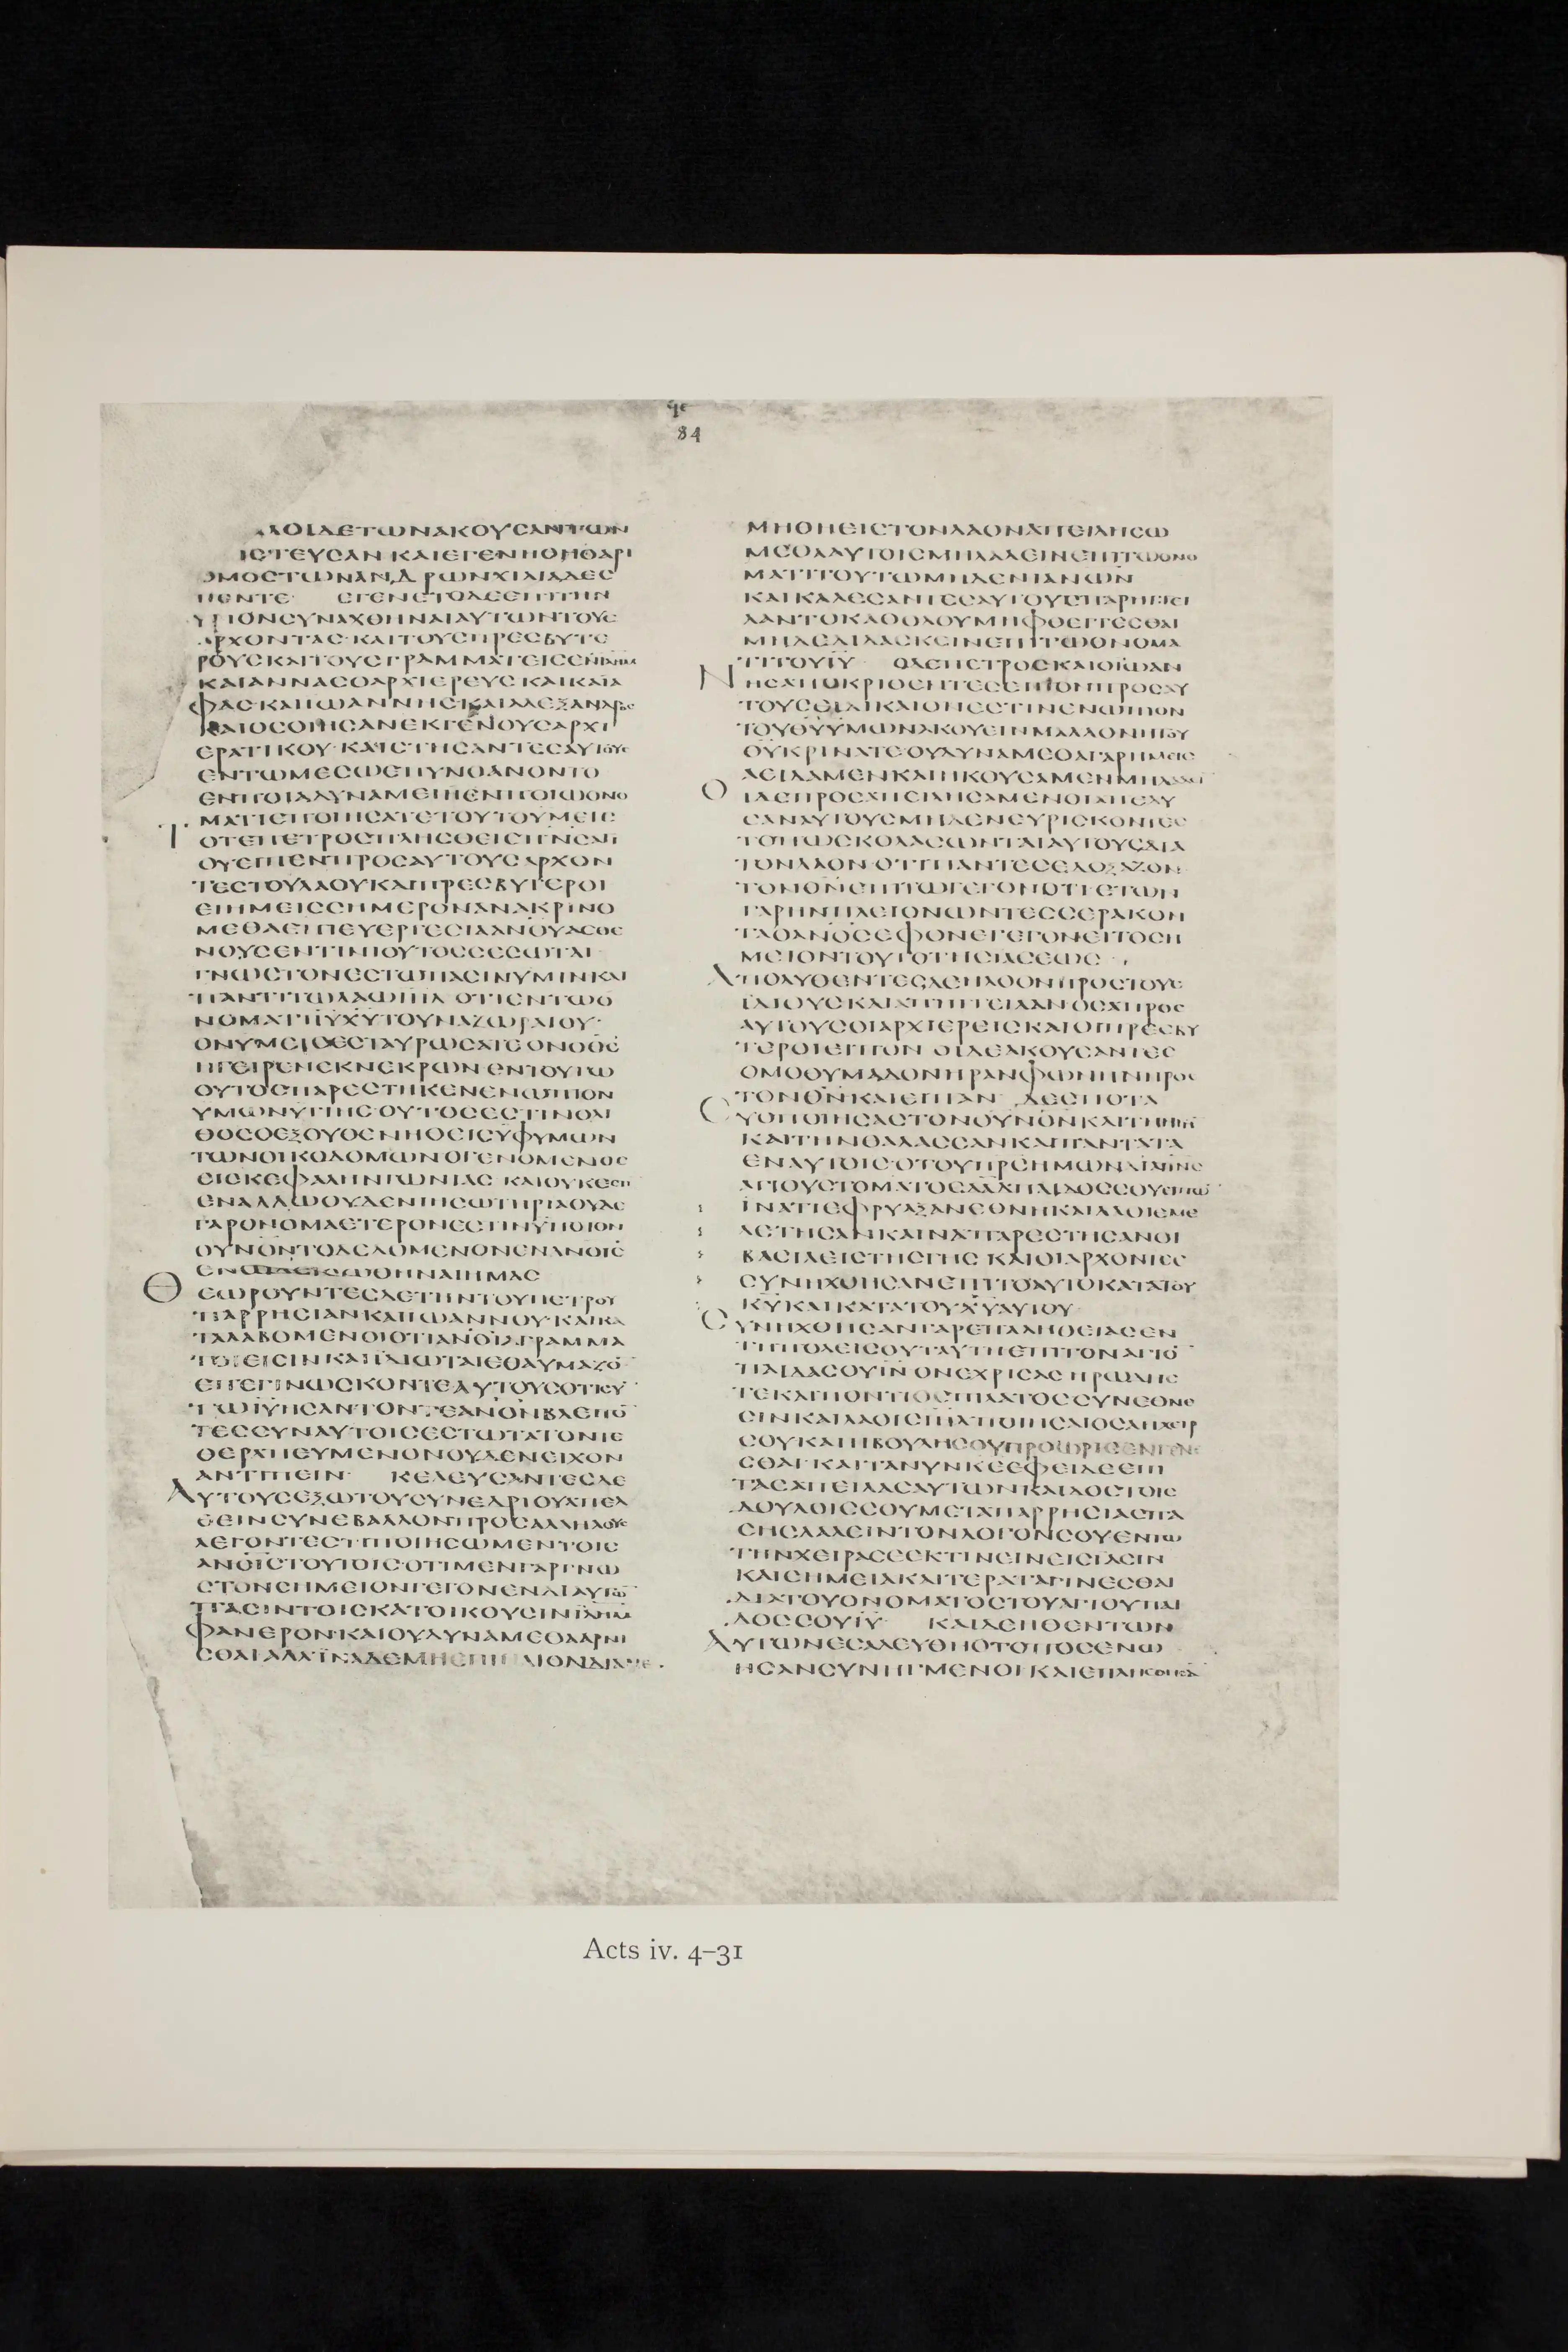 Ϟε
84
ΛΟΙΔΕΤΩΝΑΚΟΥΣΑΝΤΩΝ
ΙΣΤΕΥΣΑΝ ΚΑΙΕΓΕΝΗΟΗΘΑΡΙ
ΘΜΟΣΤΩΝΑΝΔΡΩΝΧΙΛΙΑΔΕΣ
ΠΕΝΤΕ ΕΓΕΝΕΤΟΔΕΕΠΙΤΗΝ
ΥΡΙΟΝΣΥΝΑΧΘΗΝΑΙΑΥΤΩΝΤΟΥΣ
ΑΡΧΟΝΤΑΣ·ΚΑΙΤΟΥΣΠΡΕΣΒΥΤΕ
ΡΟΥΣΚΑΙΤΟΥΣΓΡΑΜΜΑΤΕΙΣΕΝΙΛΗΜ
ΚΑΙΑΝΝΑΣΟΑΡΧΙΕΡΕΥΣ ΚΑΙΚΑΪΑ
ΦΑΣ·ΚΑΙΙΩΑΝΝΗΣ·ΚΑΙΑΛΕΞΑΝΔΡΟΣ
ΚΑΙΟΣΟΙΗΣΑΝΕΚΓΕΝΟΥΣΑΡΧΙ
ΕΡΑΤΙΚΟΥ·ΚΑΙΣΤΗΣΑΝΤΕΣΑΥΤΟΥΣ
ΕΝΤΩΜΕΣΩΕΠΥΝΘΑΝΟΝΤΟ
ΕΝΠΟΙΑΔΥΝΑΜΕΙΗΕΝΠΟΙΩΟΝΟ
ΜΑΤΙΕΠΟΙΗΣΑΤΕΤΟΥΤΟΥΜΕΙΣ
ΤΟΤΕΠΕΤΡΟΣΠΛΗΣΘΕΙΣΠΝΣΑΓΙ
ΟΥΕΙΠΕΝΠΡΟΣΑΥΤΟΥΣΑΡΧΟΝ
ΤΕΣΤΟΥΛΑΟΥΚΑΙΠΡΕΣΒΥΤΕΡΟΙ
ΕΙΗΜΕΙΣΣΗΜΕΡΟΝΑΝΑΚΡΙΝΟ
ΜΕΘΑΕΠΙΕΥΕΡΓΕΣΙΑΑΝΟΥΑΣΘΕ
ΝΟΥΣΕΝΤΙΝΙΟΥΤΟΣΣΕΣΩΤΑΙ·
ΓΝΩΣΤΟΝΕΣΤΩΠΑΣΙΝΥΜΙΝΚΑΙ
ΠΑΝΤΙΤΩΛΑΩΙΗΛ ΟΤΙΕΝΤΩΟ
ΝΟΜΑΤΙΙΥΧΥΤΟΥΝΑΖΩΡΑΙΟΥ·
ΟΝΥΜΕΙΣΕΣΤΑΥΡΩΣΑΤΕ·ΟΝΟΘΣ
ΗΓΕΙΡΕΝΕΚΝΕΚΡΩΝ·ΕΝΤΟΥΤΩ
ΟΥΤΟΣΠΑΡΕΣΤΗΚΕΝΕΝΩΠΙΟΝ
ΥΜΩΝΥΓΙΗΣ·ΟΥΤΟΣΕΣΤΙΝΟΛΙ
ΘΟΣΟΕΞΟΥΘΕΝΗΘΕΙΣΥΦΥΜΩΝ
ΤΩΝΟΙΚΟΔΟΜΩΝΟΓΕΝΟΜΕΝΟΣ
ΕΙΣΚΕΦΑΛΗΝΓΩΝΙΑΣ ΚΑΙΟΥΚΕΣΤΙ
ΕΝΑΛΛΩΟΥΔΕΝΙΗΣΩΤΗΡΙΑΟΥΔΕ
ΓΑΡΟΝΟΜΑΕΤΕΡΟΝΕΣΤΙΝΥΠΟΤΟΝ
ΟΥΝΟΝΤΟΔΕΔΟΜΕΝΟΝΕΝΑΝΟΙΣ
ΕΝΩΔΕΙΣΩΘΗΝΑΙΗΜΑΣ
ΘΕΩΡΟΥΝΤΕΣΔΕΤΗΝΤΟΥΠΕΤΡΟΥ
ΠΑΡΡΗΣΙΑΝΚΑΙΙΩΑΝΝΟΥ·ΚΑΙΚΑ
ΤΑΛΑΒΟΜΕΝΟΙΟΤΙΑΝΟΙΑΓΡΑΜΜΑ
ΤΟΙΕΙΣΙΝΚΑΙΙΔΙΩΤΑΙΕΘΑΥΜΑΖΟ
ΕΠΕΓΙΝΩΣΚΟΝΤΕΑΥΤΟΥΣΟΤΙΣΥ
ΤΩΙΥΗΣΑΝΤΟΝΤΕΑΝΟΝΒΛΕΠΟ
ΤΕΣΣΥΝΑΥΤΟΙΣΕΣΤΩΤΑΤΟΝΤΕ
ΘΕΡΑΠΕΥΜΕΝΟΝΟΥΔΕΝΕΙΧΟΝ
ΑΝΤΙΠΕΙΝ ΚΕΛΕΥΣΑΝΤΕΣΔΕ
ΑΥΤΟΥΣΕΞΩΤΟΥΣΥΝΕΔΡΙΟΥΑΠΕΛ
ΘΕΙΝΣΥΝΕΒΑΛΛΟΝΠΡΟΣΑΛΛΗΛΟΥΣ
ΛΕΓΟΝΤΕΣΤΙΠΟΙΗΣΩΜΕΝΤΟΙΣ
ΑΝΟΙΣΤΟΥΤΟΙΣ·ΟΤΙΜΕΝΓΑΡΓΝΩ
ΣΤΟΝΣΗΜΕΙΟΝΓΕΓΟΝΕΝΔΙΑΥΤΩ
ΠΑΣΙΝΤΟΙΣΚΑΤΟΙΚΟΥΣΙΝΙΛΗΜ
ΦΑΝΕΡΟΝ·ΚΑΙΟΥΔΥΝΑΜΕΘΑΑΡΝΙ
ΣΘΑΙΑΛΛΙΝΑΔΕΜΗΕΠΙΠΛΙΟΝΔΙΑΝΕ
ΜΗΘΗΕΙΣΤΟΝΛΑΟΝΑΠΕΙΛΗΣΩ
ΜΕΘΑΑΥΤΟΙΣΜΗΛΑΛΕΙΝΕΠΙΤΩΟΝΟ
ΜΑΤΙΤΟΥΤΩΜΗΔΕΝΙΑΝΩΝ
ΚΑΙΚΑΛΕΣΑΝΤΕΣΑΥΤΟΥΣΠΑΡΗΓΓΕΙ
ΛΑΝΤΟΚΑΘΟΛΟΥΜΗΦΘΕΓΓΕΣΘΑΙ
ΜΗΔΕΔΙΔΑΣΚΕΙΝΕΠΙΤΩΟΝΟΜΑ
ΤΙΤΟΥΙΥ ΟΔΕΠΕΤΡΟΣΚΑΙΟΙΩΑΝ
ΝΗΣΑΠΟΚΡΙΘΕΝΤΕΣΕΙΠΟΝΠΡΟΣΑΥ
ΤΟΥΣΕΙΔΙΚΑΙΟΝΕΣΤΙΝΕΝΩΠΙΟΝ
ΤΟΥΘΥΥΜΩΝΑΚΟΥΕΙΝΜΑΛΛΟΝΗΤΟΥ
ΘΥΚΡΙΝΑΤΕ·ΟΥΔΥΝΑΜΕΘΑΓΑΡΗΜΕΙΣ
ΑΕΙΔΑΜΕΝΚΑΙΗΚΟΥΣΑΜΕΝΜΗΛΑΛΕΙ
ΟΙΔΕΠΡΟΣΑΠΕΙΛΗΣΑΜΕΝΟΙΑΠΕΛΥ
ΣΑΝΑΥΤΟΥΣΜΗΔΕΝΕΥΡΙΣΚΟΝΤΕΣ
ΤΟΠΩΣΚΟΛΑΣΩΝΤΑΙΑΥΤΟΥΣΔΙΑ
ΤΟΝΛΑΟΝ·ΟΤΙΠΑΝΤΕΣΕΔΟΞΑΖΟΝ
ΤΟΝΘΝΕΠΙΤΩΓΕΓΟΝΟΤΙΕΤΩΝ
ΓΑΡΗΝΠΛΕΙΟΝΩΝΤΕΣΣΕΡΑΚΟΝ
ΤΑΟΑΝΟΣΕΦΟΝΕΓΕΓΟΝΕΙΤΟΣΗ
ΜΕΙΟΝΤΟΥΤΟΤΗΣΙΑΣΕΩΣ·
ΑΠΟΛΥΘΕΝΤΕΣΔΕΗΛΘΟΝΠΡΟΣΤΟΥΣ
ΙΔΙΟΥΣΚΑΙΑΠΗΓΓΕΙΛΑΝΟΣΑΠΡΟΣ
ΑΥΤΟΥΣΟΙΑΡΧΙΕΡΕΙΣΚΑΙΟΙΠΡΕΣΒΥ
ΤΕΡΟΙΕΙΠΟΝ ΟΙΔΕΑΚΟΥΣΑΝΤΕΣ
ΟΜΟΘΥΜΑΔΟΝΗΡΑΝΦΩΝΗΝΠΡΟΣ
ΤΟΝΘΝΚΑΙΕΙΠΑΝ ΔΕΣΠΟΤΑ
ΣΥΟΠΟΙΗΣΑΣΤΟΝΟΥΝΟΝΚΑΙΤΗΝΓΗ
ΚΑΙΤΗΝΘΑΛΑΣΣΑΝΚΑΙΠΑΝΤΑΤΑ
ΕΝΑΥΤΟΙΣ·ΟΤΟΥΠΡΣΗΜΩΝΔΙΑΠΝΣ
ΑΓΙΟΥΣΤΟΜΑΤΟΣΔΑΔΠΑΙΔΟΣΣΟΥΕΙΠΩ
ΙΝΑΤΙΕΦΡΥΑΞΑΝΕΘΝΗΚΑΙΛΑΟΙΕΜΕ
ΛΕΤΗΣΑΝΚΑΙΝΑΠΑΡΕΣΤΗΣΑΝΟΙ
ΒΑΣΙΛΕΙΣΤΗΣΓΗΣ ΚΑΙΟΙΑΡΧΟΝΤΕΣ
ΣΥΝΗΧΘΗΣΑΝΕΠΙΤΟΑΥΤΟΚΑΤΑΤΟΥ
ΚΥΚΑΙΚΑΤΑΤΟΥΧΥΑΥΤΟΥ
ΣΥΝΗΧΘΗΣΑΝΓΑΡΕΠΑΛΗΘΕΙΑΣΕΝ
ΤΗΠΟΛΕΙΣΟΥΤΑΥΤΗΕΠΙΤΟΝΑΓΙΟ
ΠΑΙΔΑΣΟΥΙΝ ΟΝΕΧΡΙΣΑΣ ΗΡΩΔΗΣ
ΤΕΚΑΙΠΟΝΤΙΟΣΠΙΛΑΤΟΣΣΥΝΕΘΝΕ
ΣΙΝΚΑΙΛΑΟΙΣΙΗΛΠΟΙΗΣΑΙΟΣΑΗΧΕΙΡ
ΣΟΥΚΑΙΗΒΟΥΛΗΣΟΥΠΡΟΩΡΙΣΕΝΓΕΝΕ
ΣΘΑΙ·ΚΑΙΤΑΝΥΝΚΕΕΦΕΙΔΕΕΠΙ
ΤΑΣΑΠΕΙΛΑΣΑΥΤΩΝΚΑΙΔΟΣΤΟΙΣ
ΔΟΥΛΟΙΣΣΟΥΜΕΤΑΠΑΡΡΗΣΙΑΣΠΑ
ΣΗΣΛΑΛΕΙΝΤΟΝΛΟΓΟΝΣΟΥΕΝΤΩ
ΤΗΝΧΕΙΡΑΣΕΕΚΤΙΝΕΙΝΕΙΣΙΑΣΙΝ
ΚΑΙΣΗΜΕΙΑΚΑΙΤΕΡΑΤΑΓΙΝΕΣΘΑΙ
ΔΙΑΤΟΥΟΝΟΜΑΤΟΣΤΟΥΑΓΙΟΥΠΑΙ
ΔΟΣΣΟΥΙΥ ΚΑΙΔΕΗΘΕΝΤΩΝ
ΑΥΤΩΝΕΣΑΛΕΥΘΗΟΤΟΠΟΣΕΝΩ
ΗΣΑΝΣΥΝΗΓΜΕΝΟΙΚΑΙΕΠΛΗΣΘΗΣΑ
Acts iv. 4–31